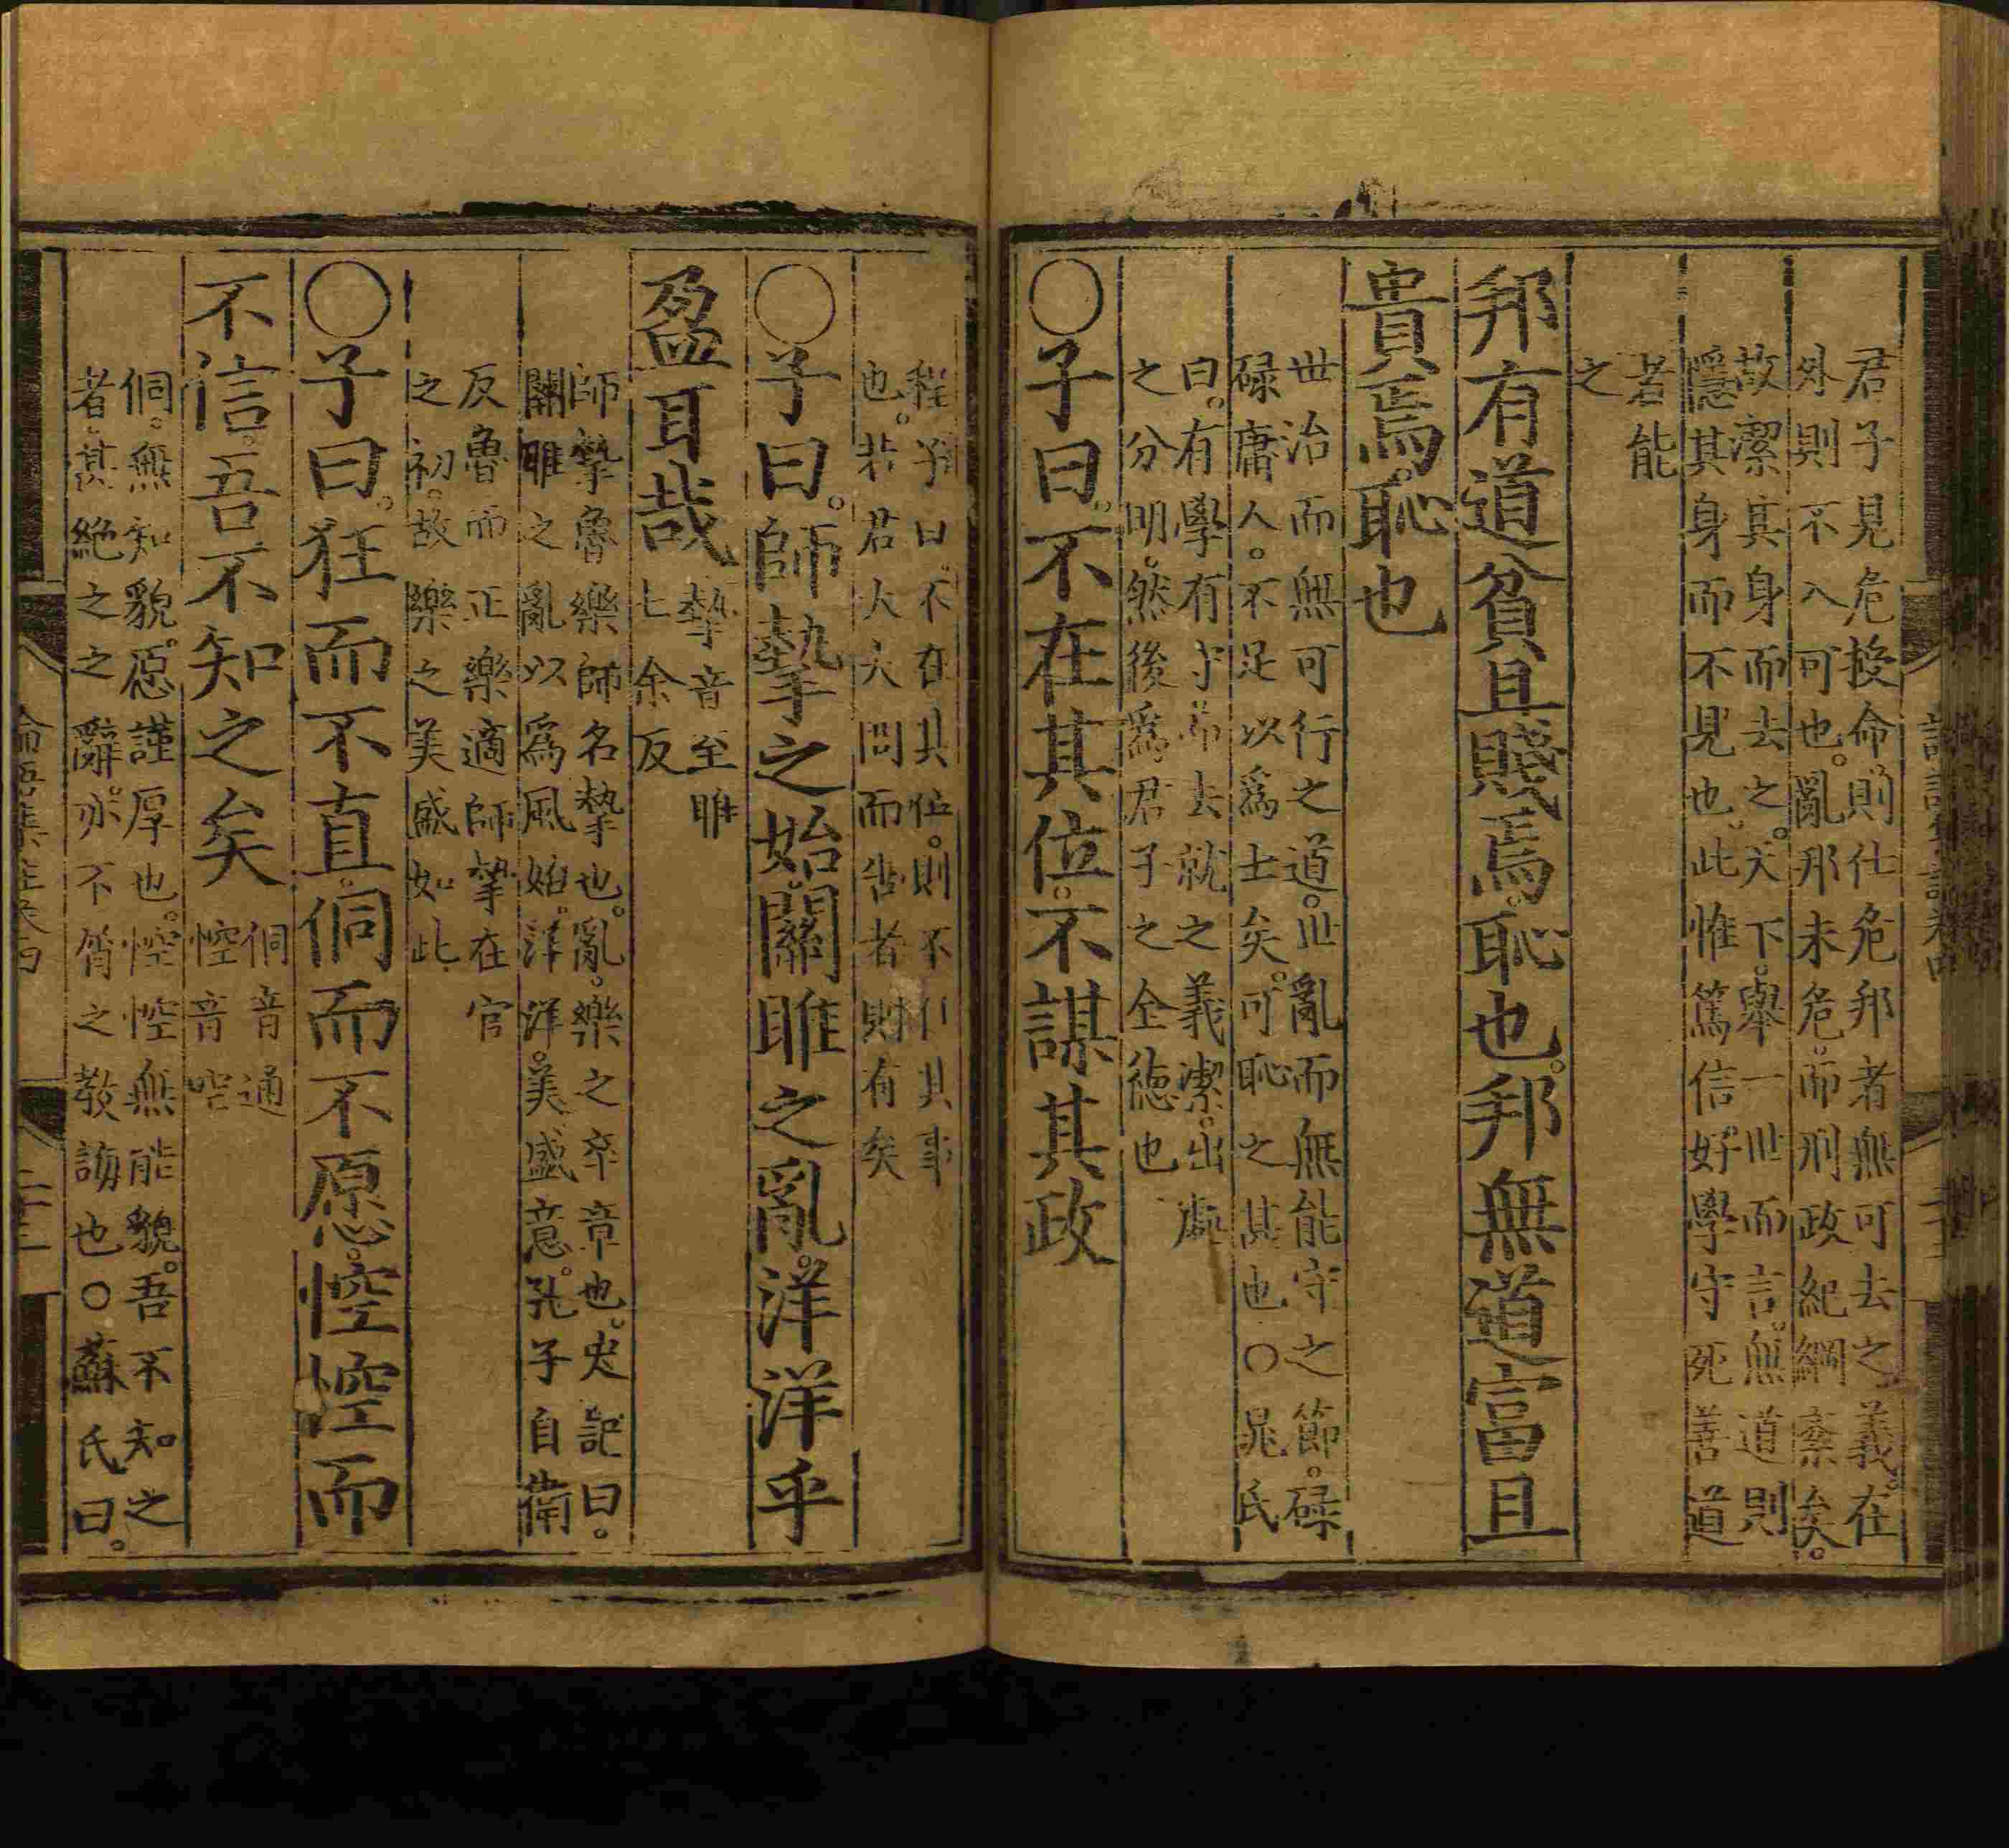 君子見危授命則仕危邦者無可去之義。在
外則不入可也。亂邦未危。而刑政紀綱紊矣。
故潔其身而去之。天下。舉一世而言。無道則
隱其身而不見也。此惟篤信好學守死善道
者能
之
邦有道貧且賤焉。恥也。邦無道富且
貴焉。恥也
世治而無可行之道。世亂而無能守之節。碌
碌庸人。不足以爲士矣。可恥之甚也○晁氏
曰。有學有守而去就之義潔。出處
之分明。然後爲君子之全德也
○子曰。不在其位。不謀其政
程子曰。不在其位。則不任其事
也。若君大夫問而告者則有矣
○子曰。師摯之始。關雎之亂。洋洋乎
盈耳哉 摯音至雎
七余反
師摯魯樂師名摯也。亂。樂之卒章也。史記曰。
關雎之亂以爲風始。洋洋。美盛意。孔子自衛
反魯而正樂適師摯在官
之初。故樂之美盛如此
○子曰。狂而不直。侗而不愿。悾悾而
不信。吾不知之矣 侗音通
悾音空
侗。無知貌。愿謹厚也。悾悾無能貌。吾不知之
者。甚絶之之辭。亦不屑之之教誨也○蘇氏曰。